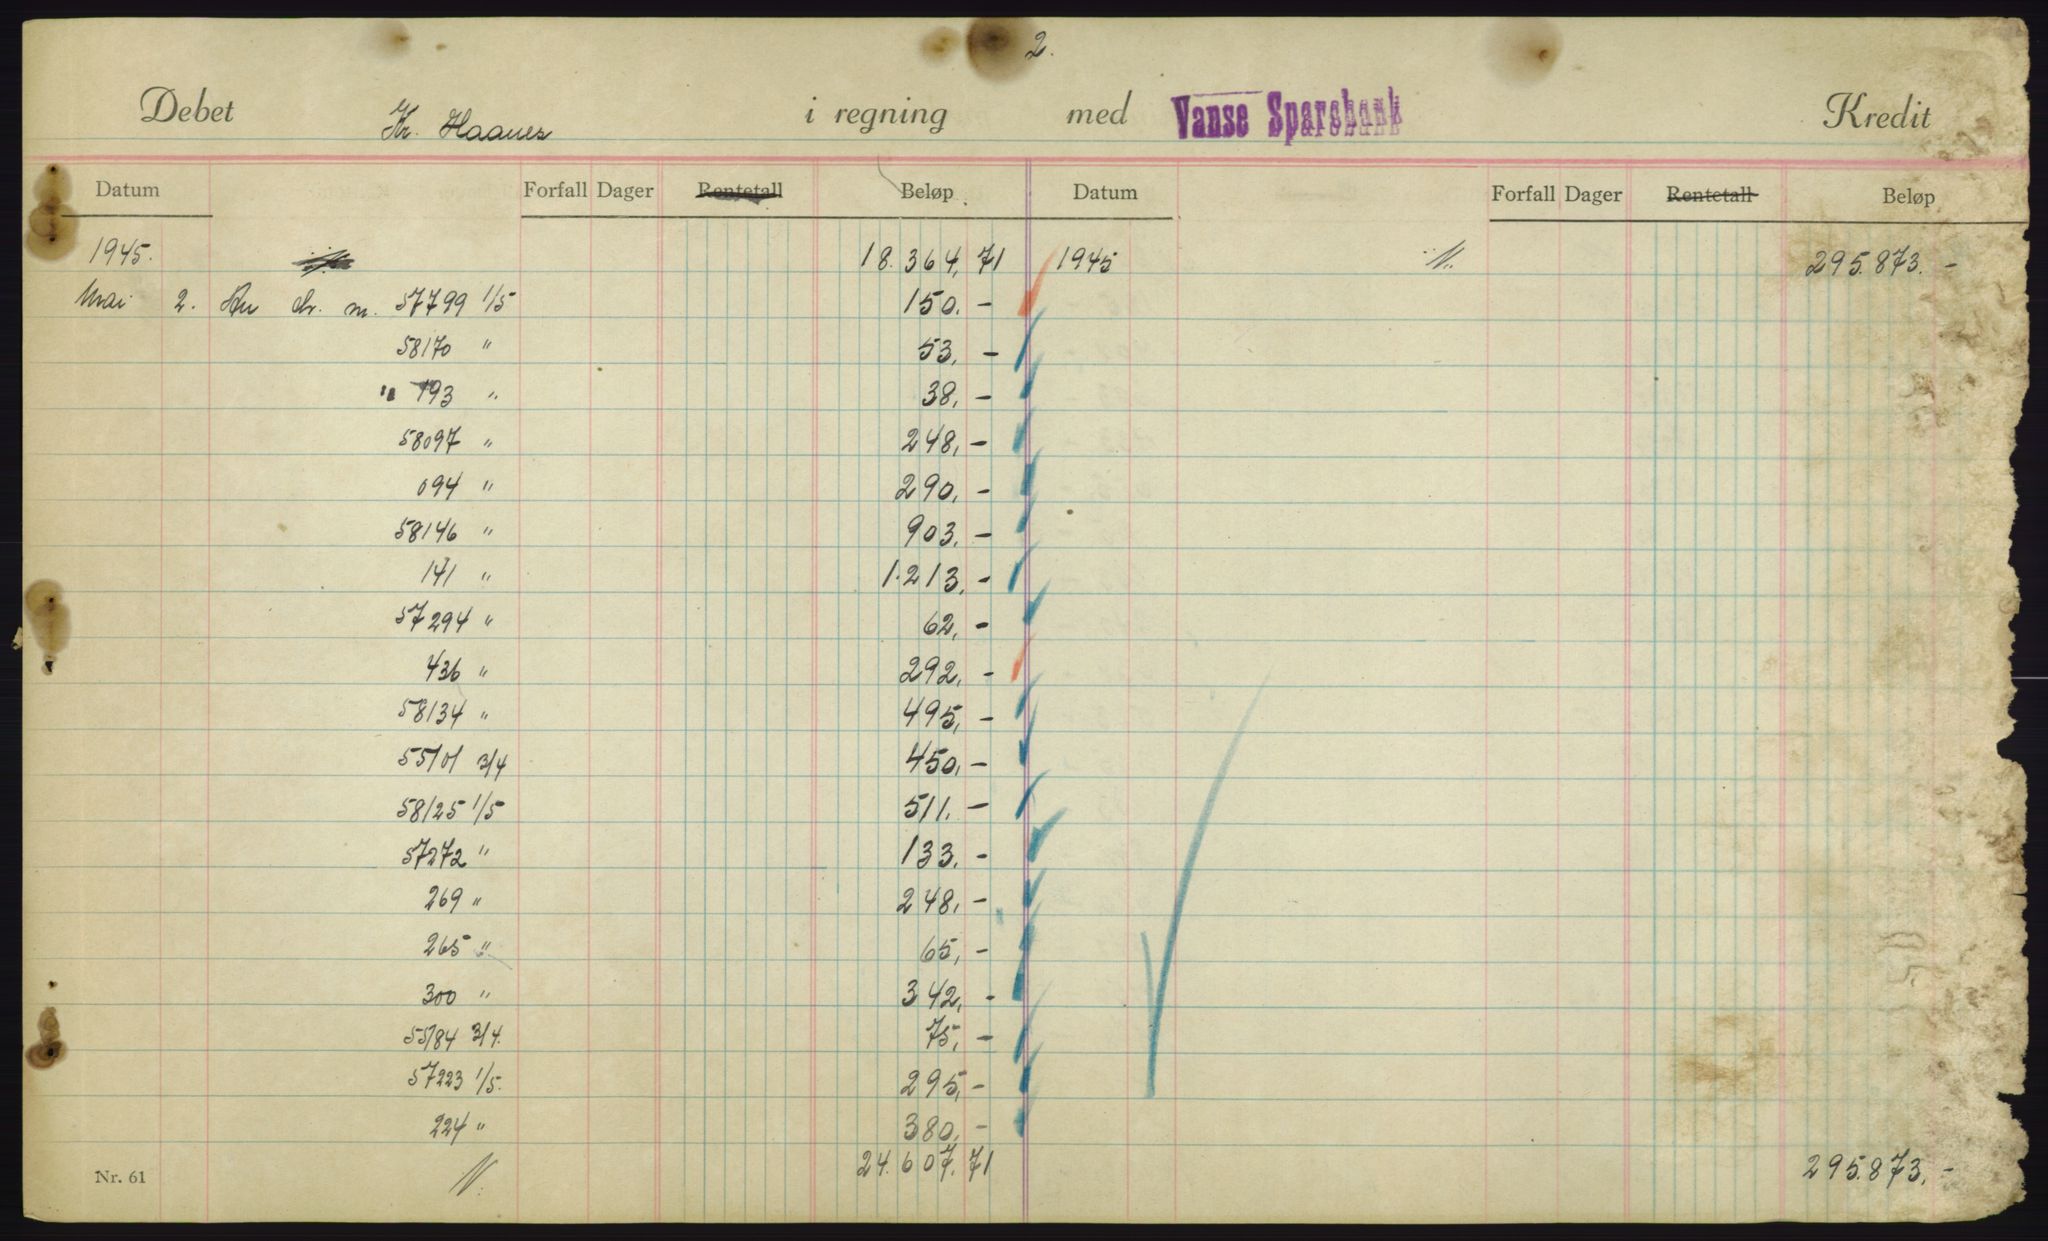 2.
Debet Kr. Haanes i regning med Vanse Sparebank Kredit
Datum Forfall Dager Rentetall Beløp Datum Forfall Dager Rentetall Beløp
1945. 18.364,71 1945 295.873.-
Mai 2. 57799 1/5 150.-
58170 " 53,-
" 193 " 38,-
58097 " 248,-
094 " 290,-
58146 " 903.-
141 " 1.213,-
57294 " 62,-
436 " 292,-
58134 " 495,-
55101 3/4 450,-
58125 1/5 511.-
57272 " 133.-
269 " 248,-
265 " 65,-
300 " 342,-
55184 3/4. 75,-
57223 1/5. 295,-
224 " 380,-
Nr. 61 24.607.71 295.873,-